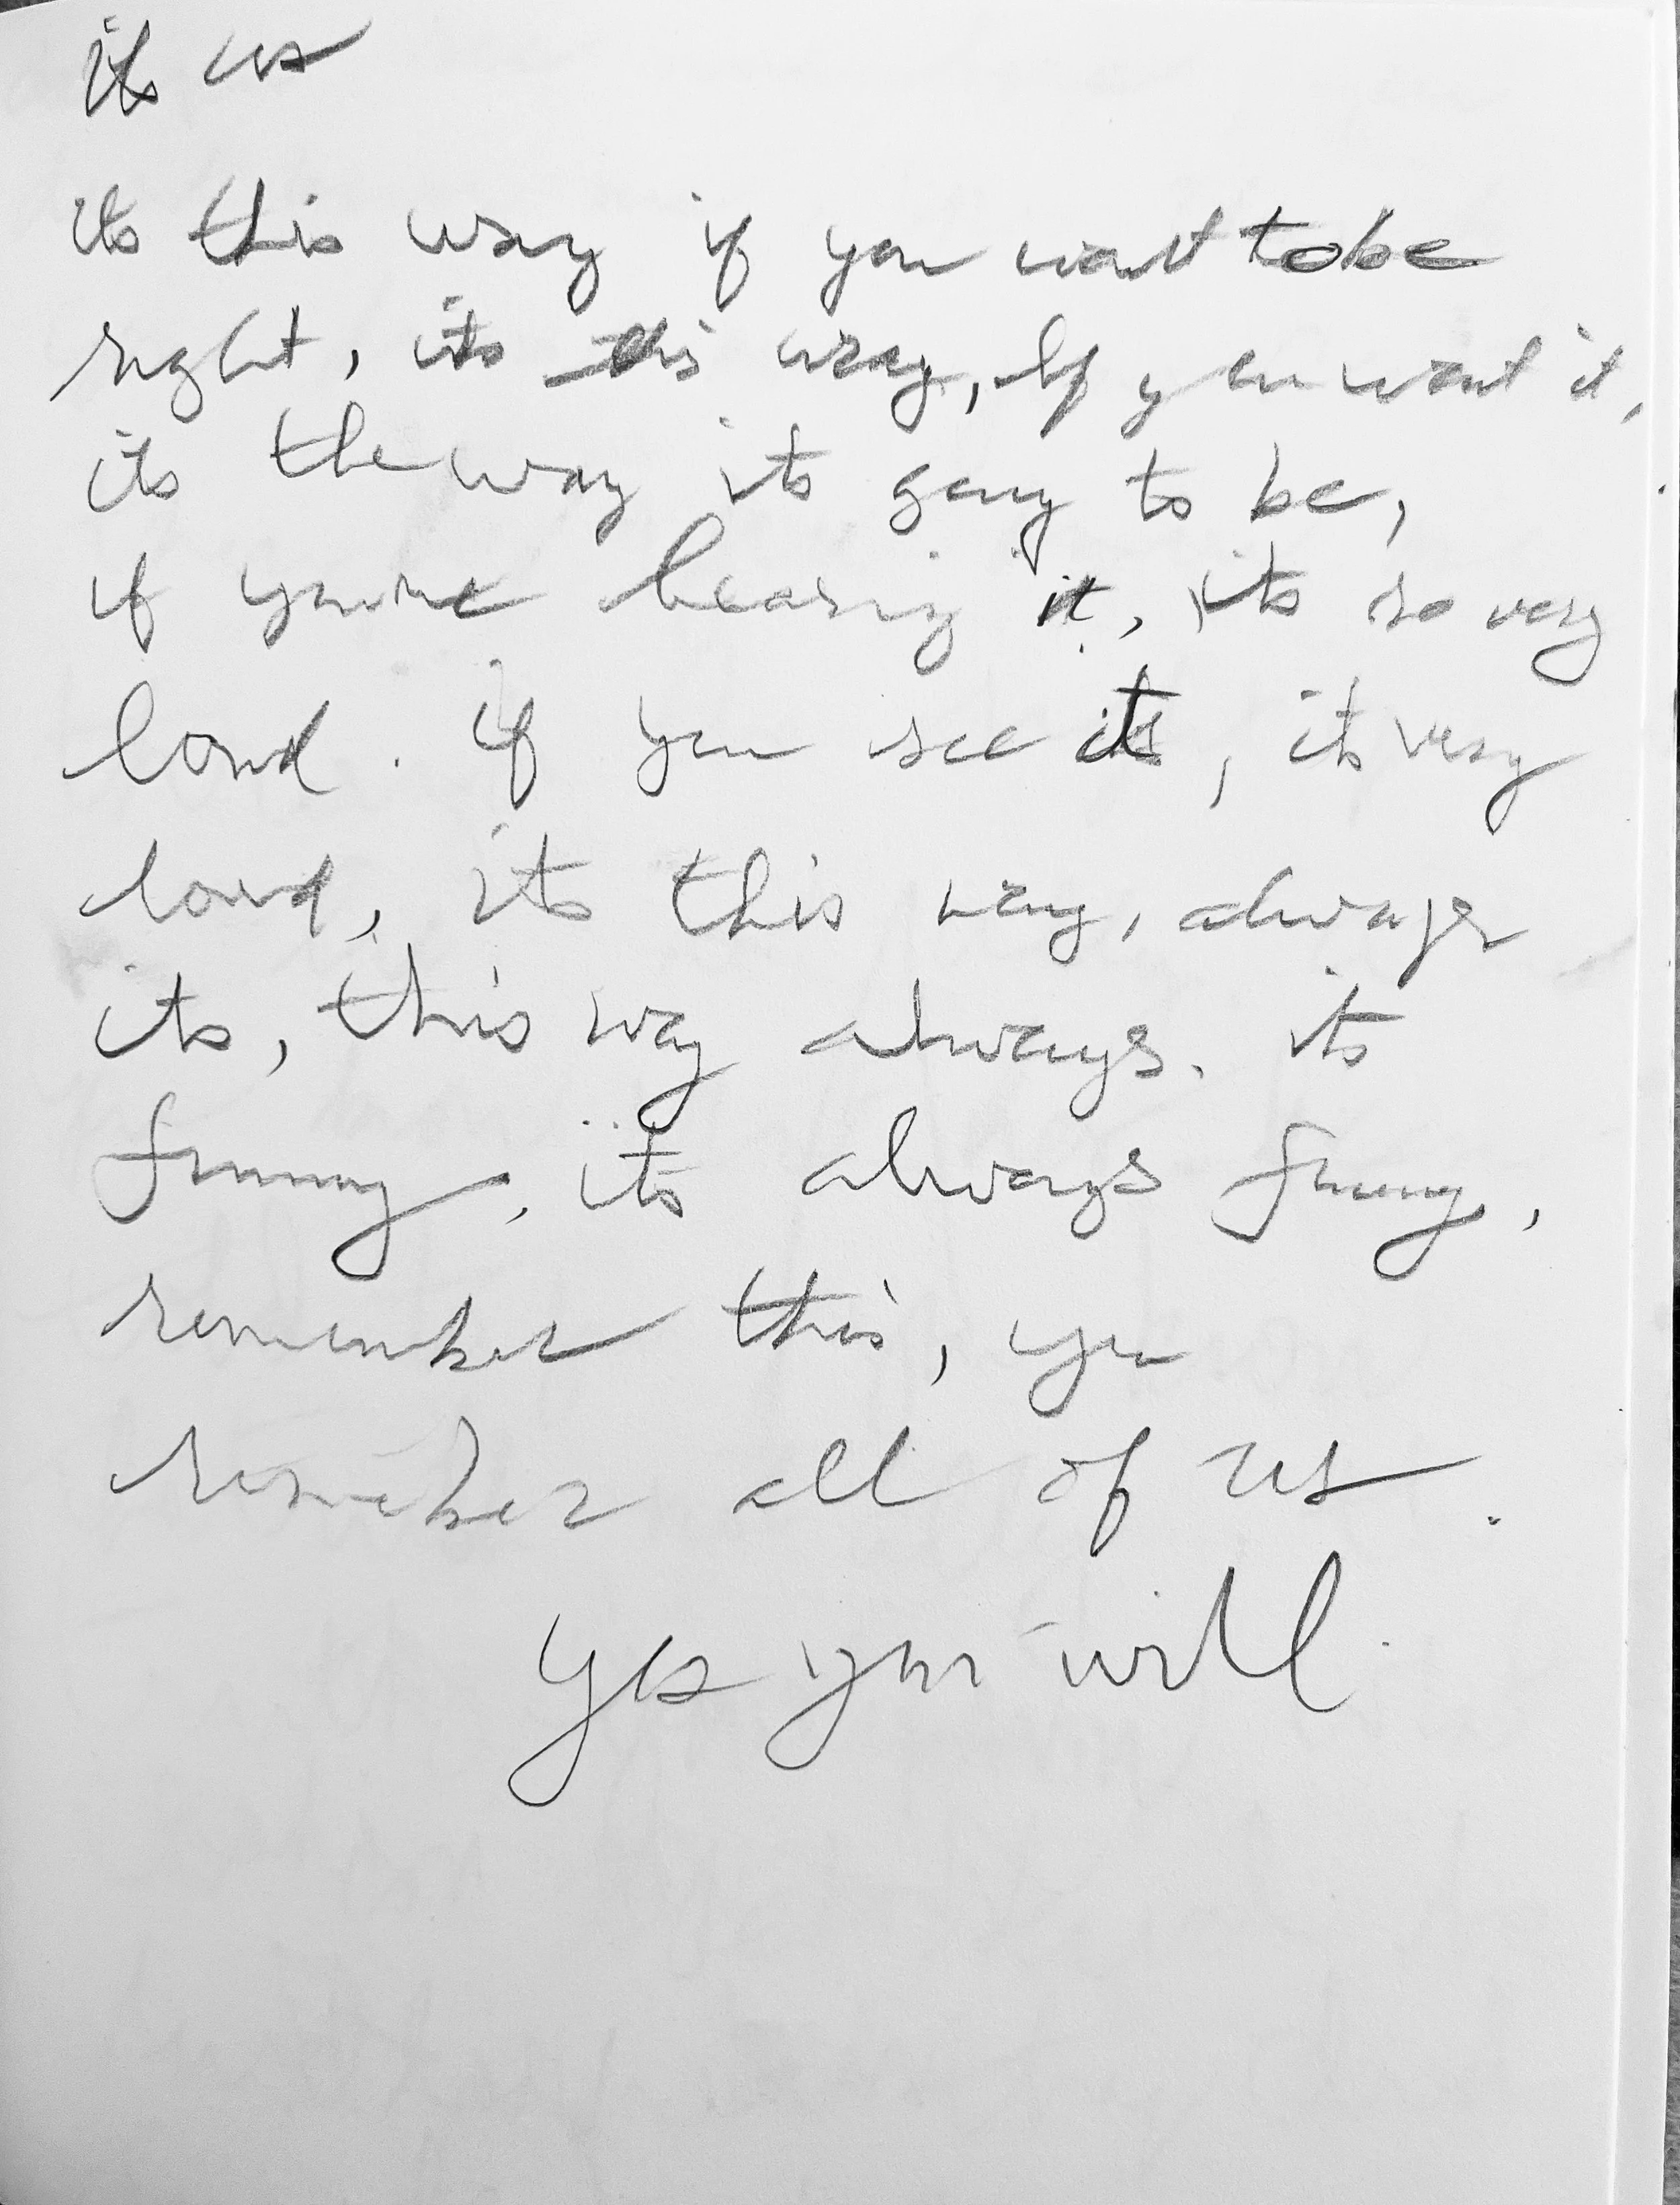 its us
its this way if you want to be
right, its this way, if you want it,
its the way its going to be,
if you're hearing it, its so very
loud. if you see it, its very
loud, its this way, always
its, this way always. its
funny, its always funny,
remember this, you
remember all of us.
yes you will.